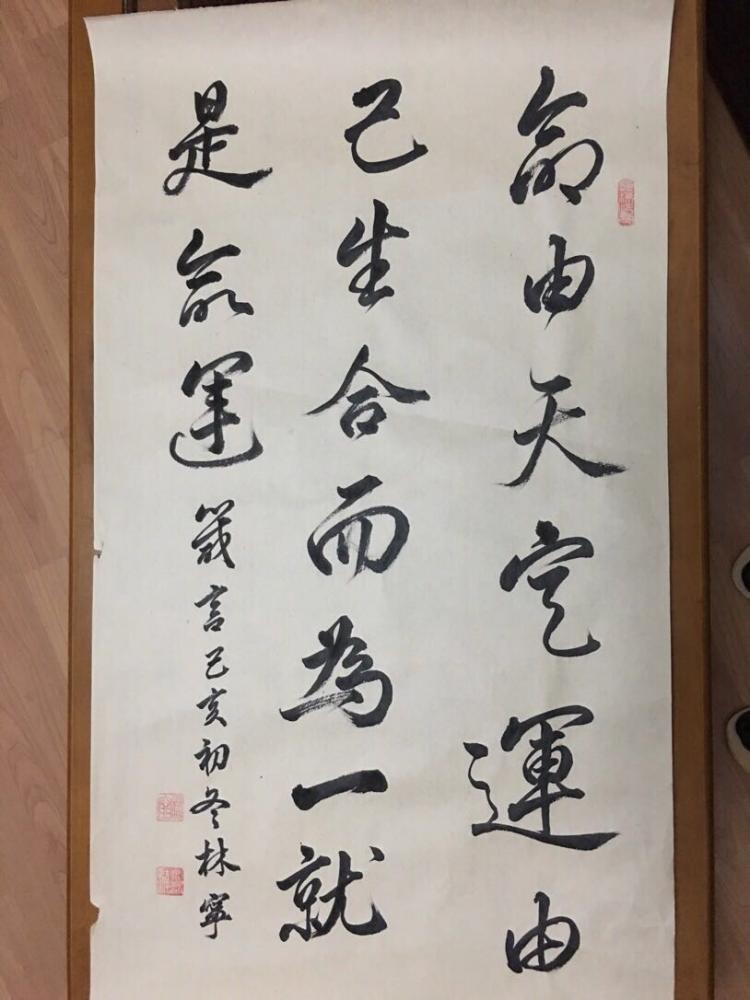 命由天定運由
己生合而為一就
是命運
箴言己亥初冬林寧